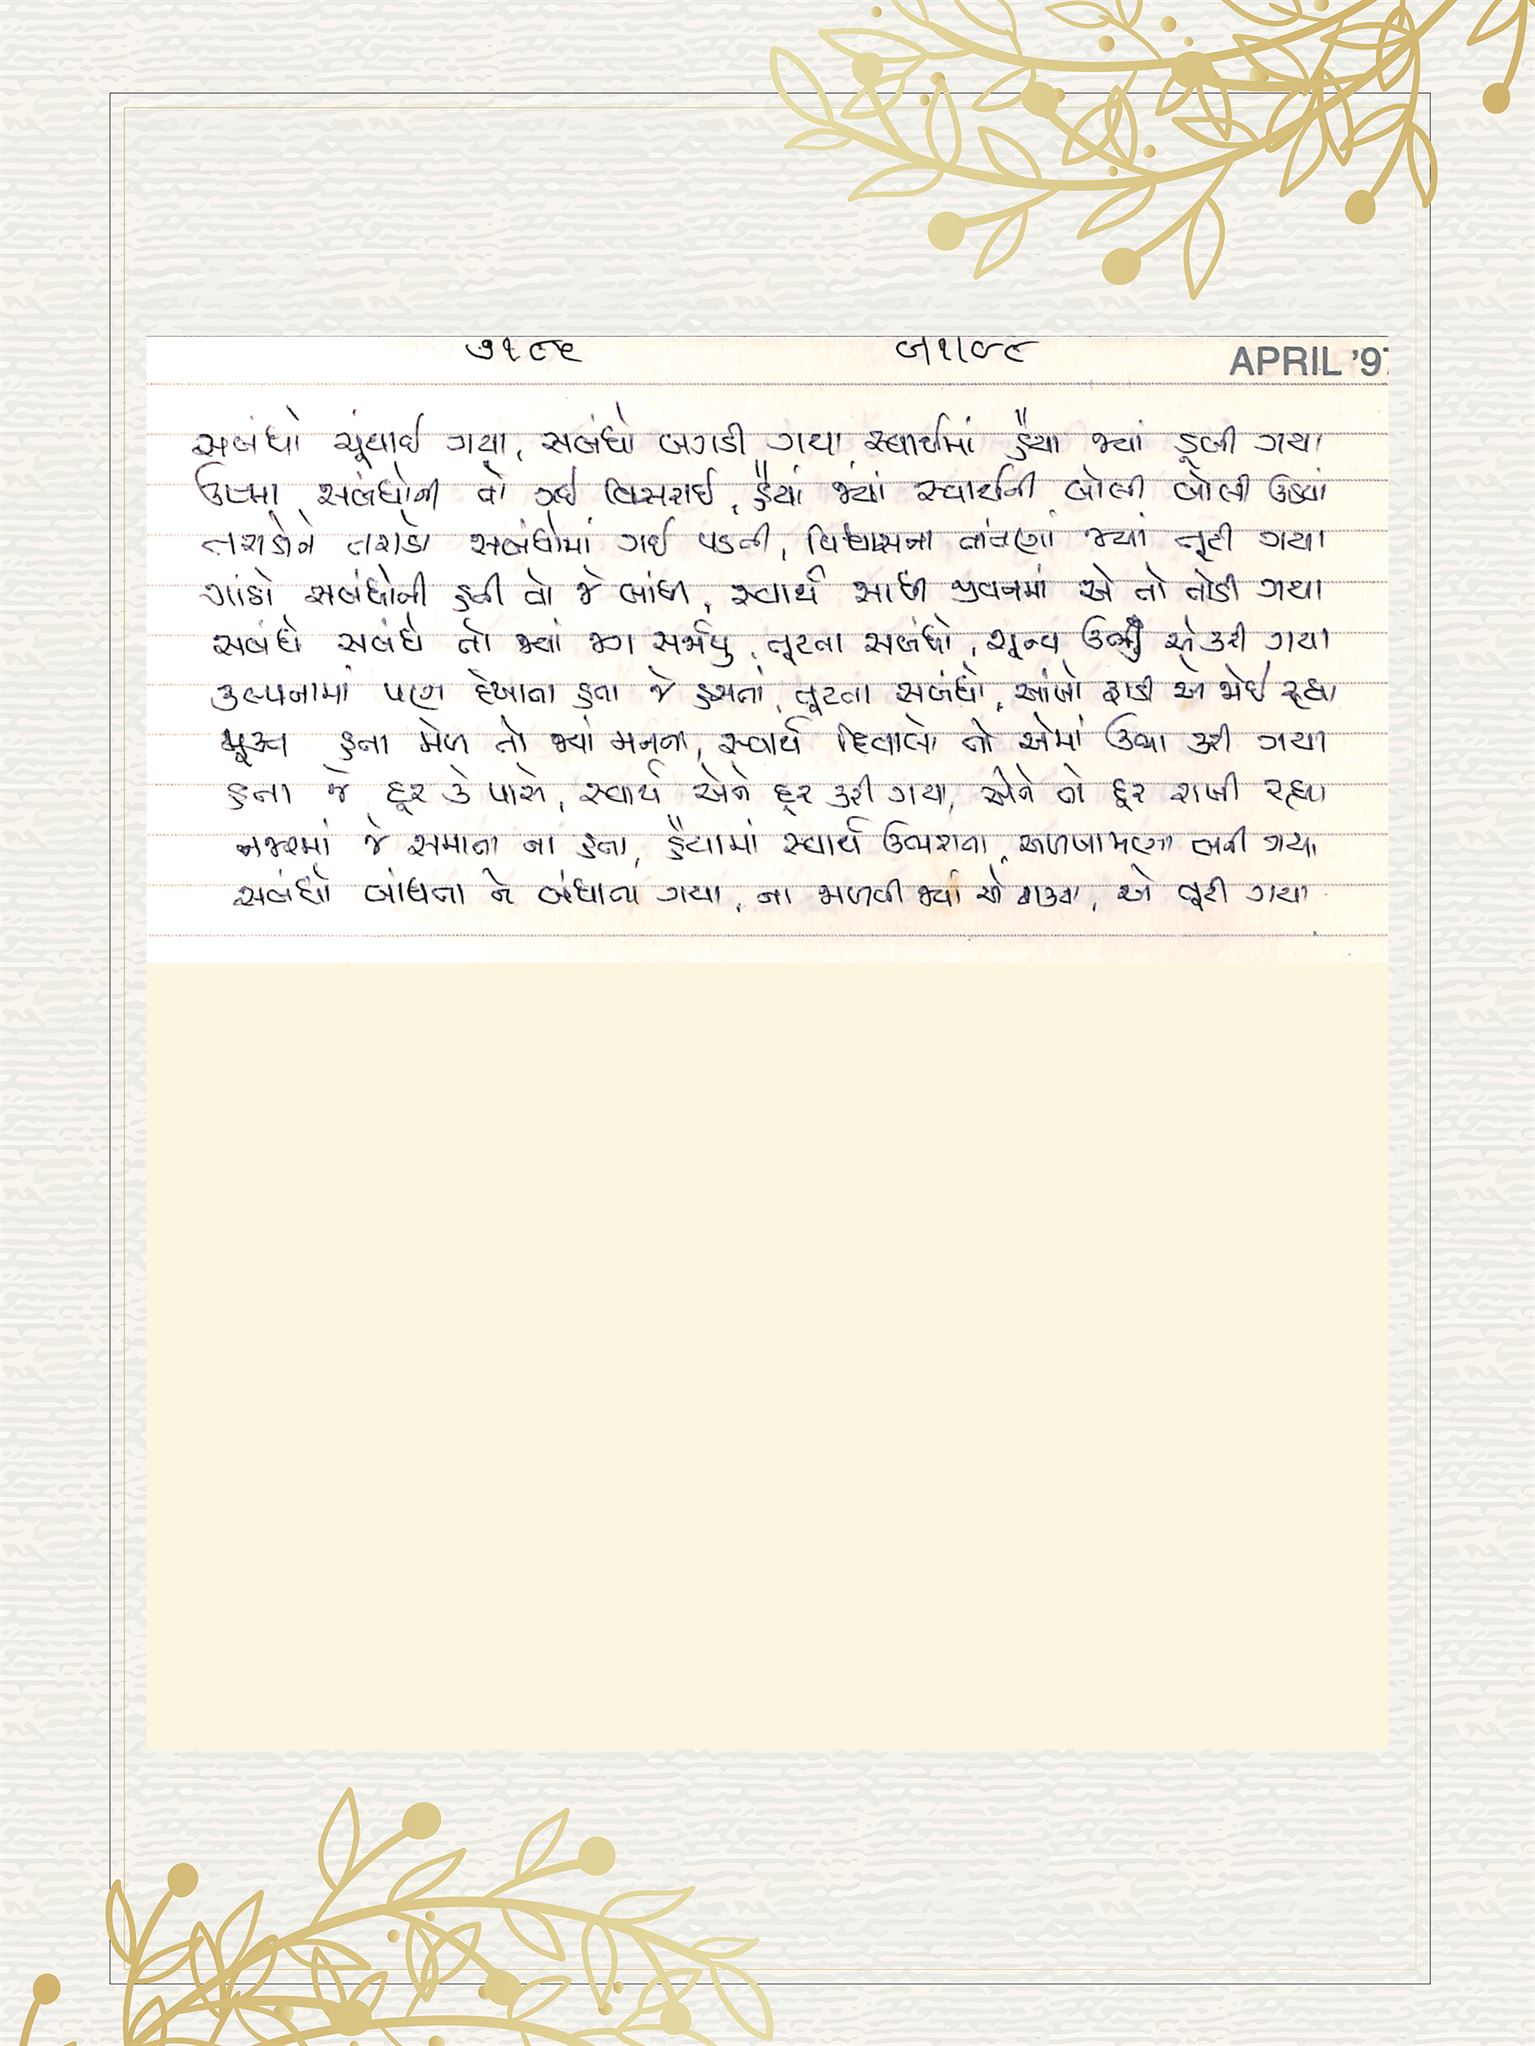 ૭૧૯૬ ૯|૧|૯૮ APRIL '97
સબંધો ચૂંથાઈ ગયા, સબંધો બગડી ગયા સ્વાર્થમાં હૈયા જ્યાં ડૂબી ગયા
ઉષ્મા સબંધોની તો ગઈ વિસરાઈ, હૈયાં જ્યાં સ્વાર્થની બોલી બોલી ઉઠયાં
તરાડોને તરાડો સબંધોમાં ગઈ પડતી, વિશ્વાસના તાંતણાં જ્યાં તૂટી ગયા
ગાંઠો સબંધોની હતી તો જે બાંધી, સ્વાર્થ સાધી જીવનમાં એ તો તોડી ગયા
સબંધે સબંધે તો જ્યાં જગ સર્જાયુ, તૂટતા સબંધો, શૂન્ય ઉભું એ કરી ગયા
કલ્પનામાં પણ દેખાતા હતા જે હસતાં, તૂટતા સબંધો, આંખો ફાડી એ જોઈ રહ્યા
મૂક્ત હતા મેળ તો જ્યાં મનના, સ્વાર્થ દિવાલો તો એમાં ઉભા કરી ગયા
હતા જે દૂર કે પાસે, સ્વાર્થ એને દૂર કરી ગયા, એને તો દૂર રાખી રહ્યા
નજરમાં જે સમાતા ના હતા, હૈયામાં સ્વાર્થ ઉભરાતા, અળખામણા બની ગયા
સબંધો બાંધતા ને બંધાતા ગયા, ના જળવી જ્યાં એ એ તૂટી ગયા